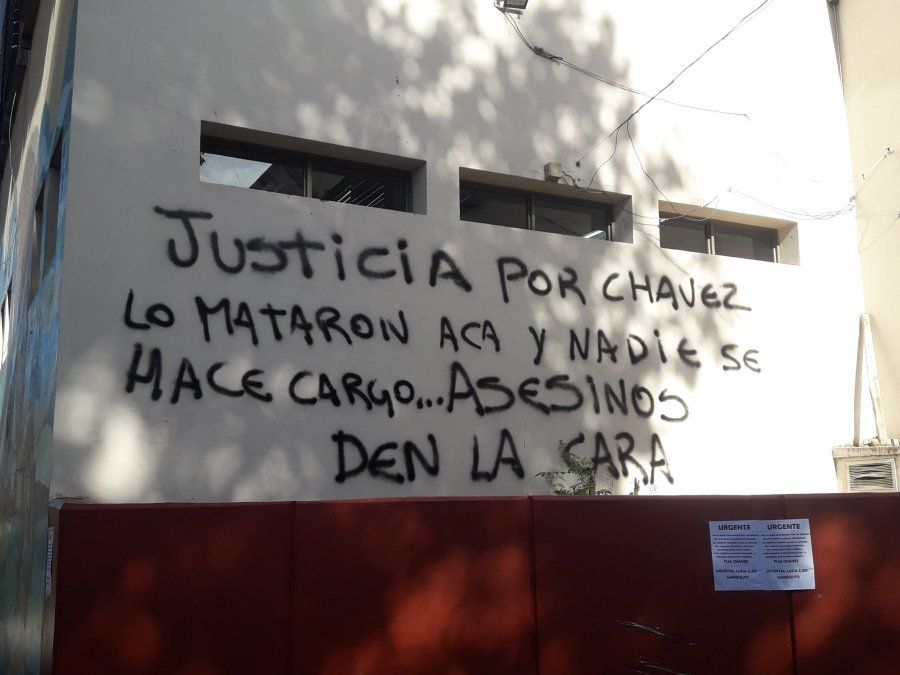 JUSTICIA POR CHAVEZ
LO MATARON ACA Y NADIE SE
HACE CARGO... ASESINOS
DEN LA CARA
URGENTE URGENTE